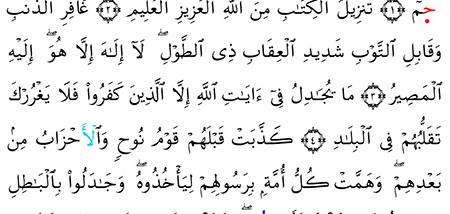 حٜمٓ ۝١ تَنزِيلُ الۡكِتَٰبِ مِنَ اللَّهِ الۡعَزِيزِ الۡعَلِيمِ ۝٢ غَافِرِ الذَّنۢبِ
وَقَابِلِ التَّوۡبِ شَدِيدِ الۡعِقَابِ ذِي الطَّوۡلِۖ لَآ إِلَٰهَ إِلَّا هُوَۖ إِلَيۡهِ
الۡمَصِيرُ ۝٣ مَا يُجَٰدِلُ فِيٓ ءَايَٰتِ اللَّهِ إِلَّا الَّذِينَ كَفَرُواْ فَلَا يَغۡرُرۡكَ
تَقَلُّبُهُمۡ فِي الۡبِلَٰدِ ۝٤ كَذَّبَتۡ قَبۡلَهُمۡ قَوۡمُ نُوحٖ وَالۡأَحۡزَابُ مِنۢ
بَعۡدِهِمۡۖ وَهَمَّتۡ كُلُّ أُمَّةِۭ بِرَسُولِهِمۡ لِيَأۡخُذُوهُۖ وَجَٰدَلُواْ بِالۡبَٰطِلِ